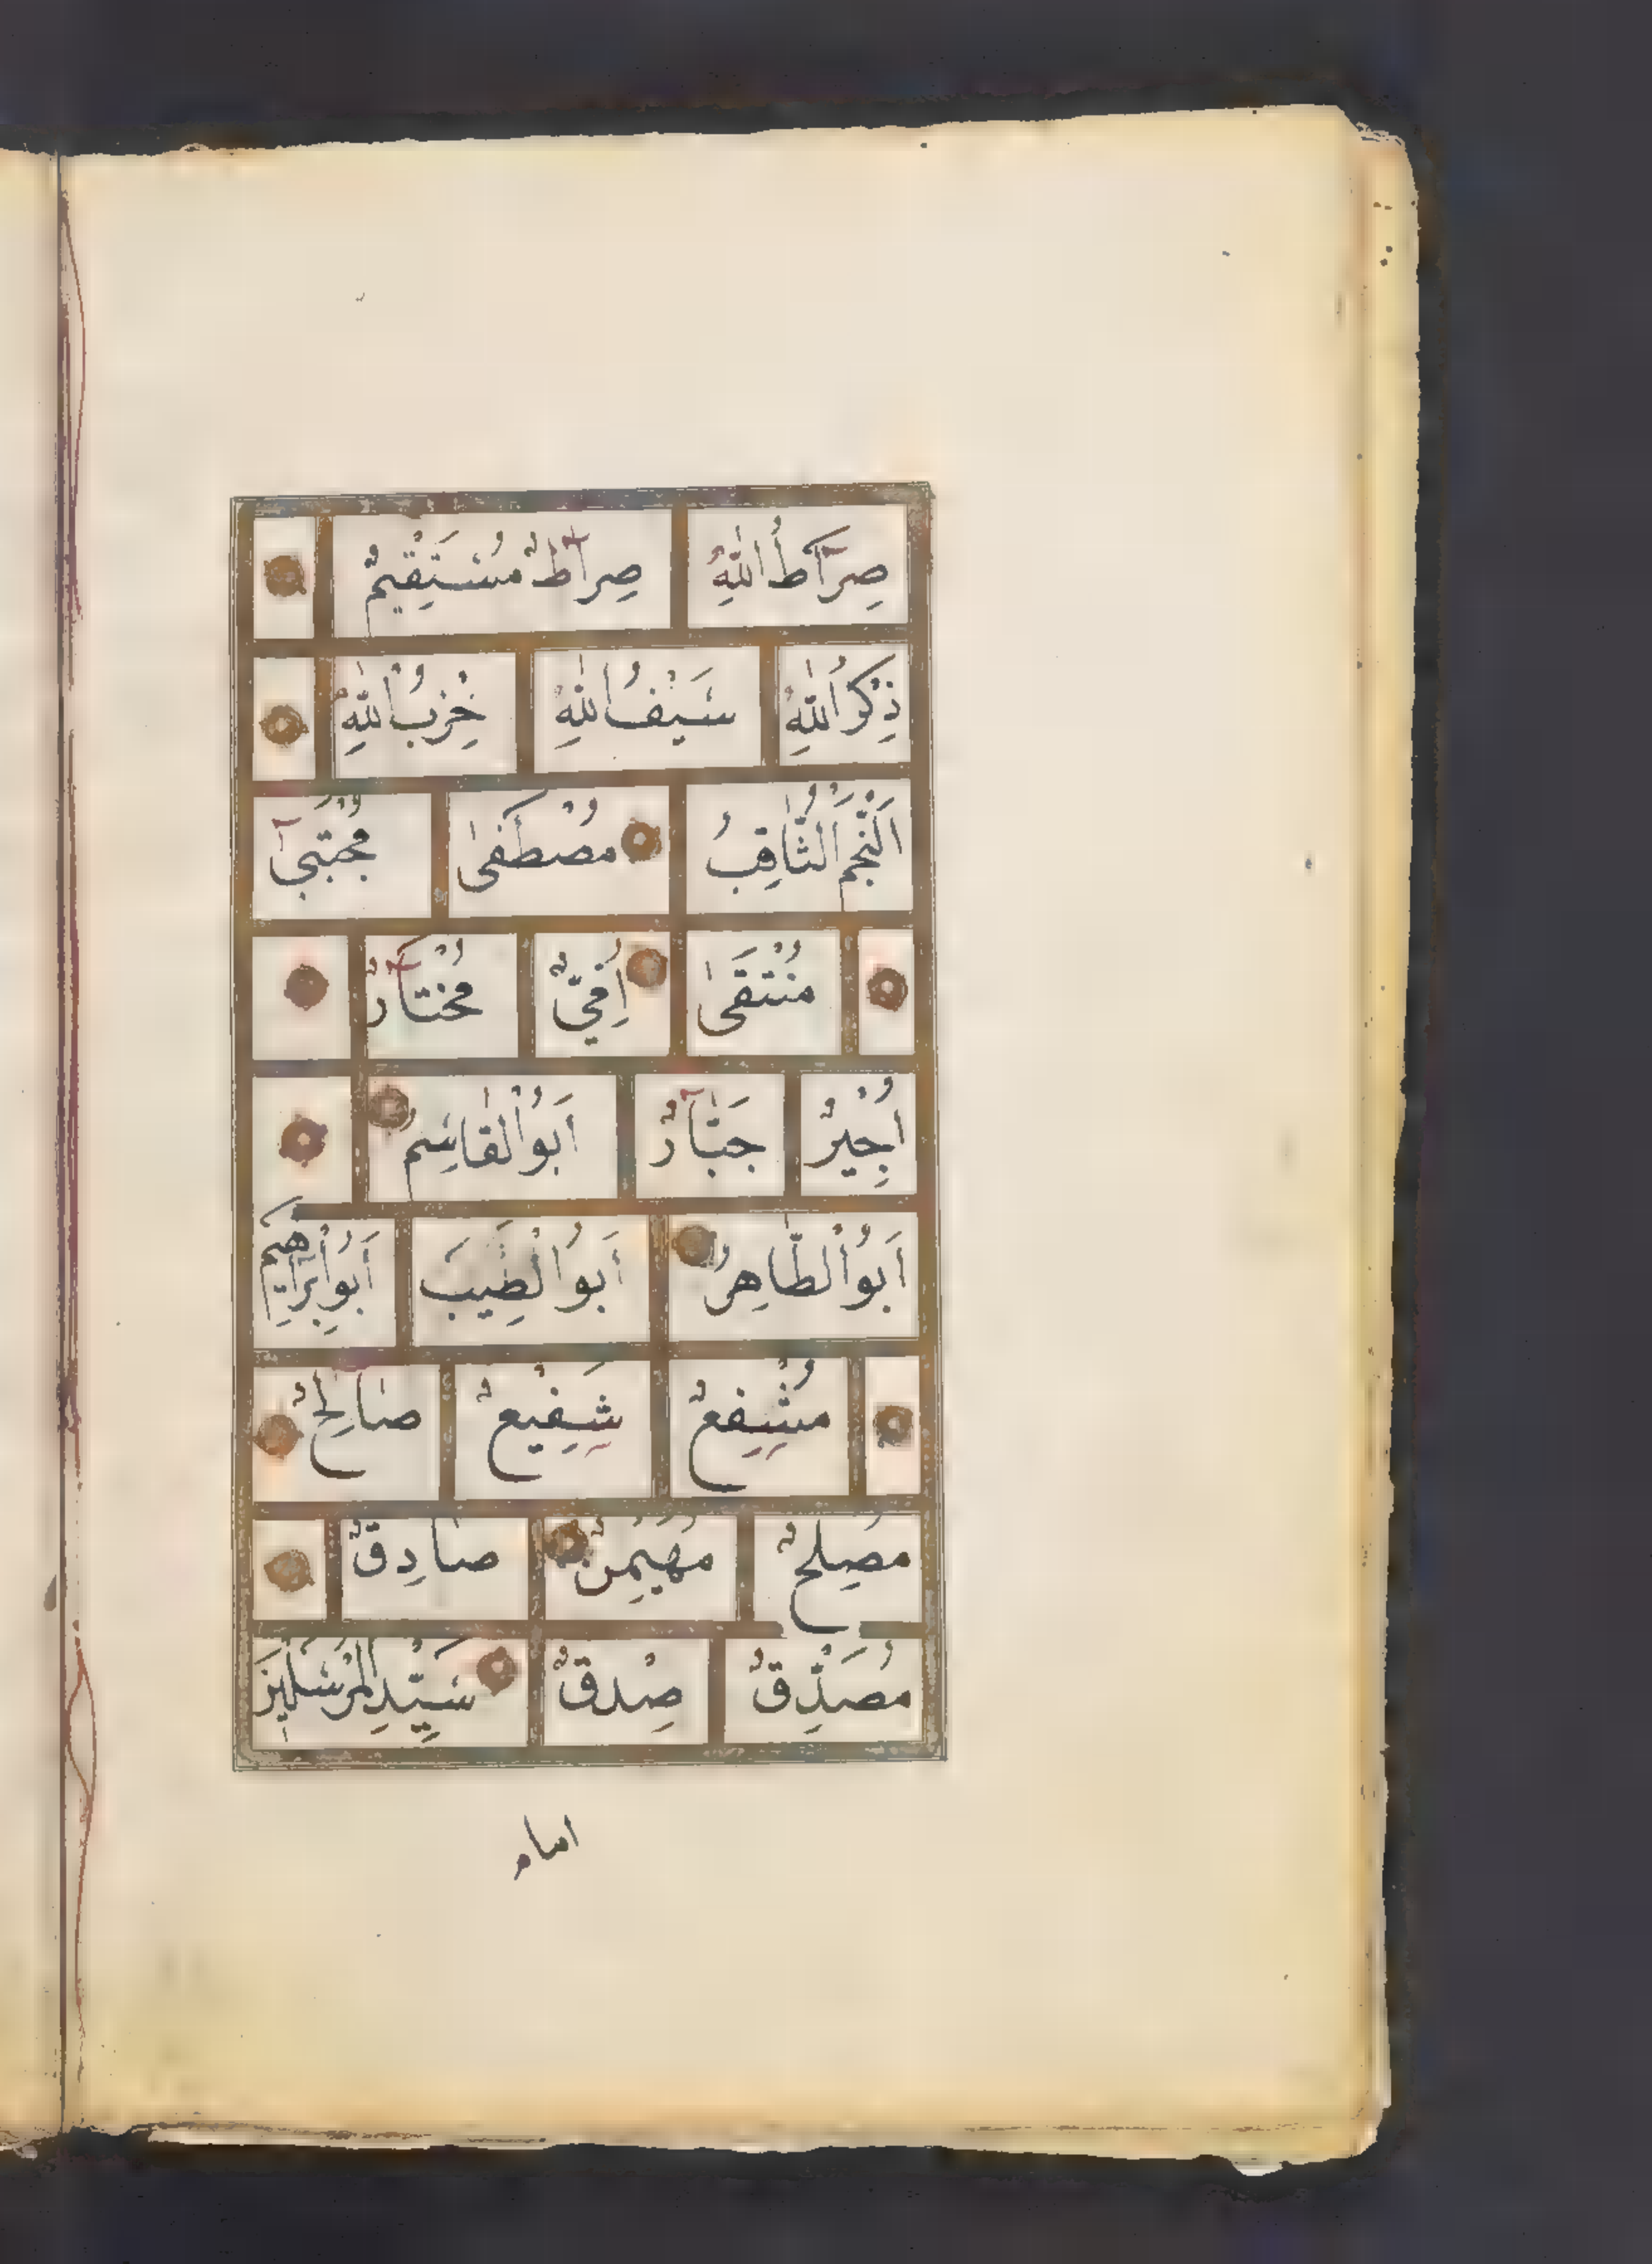 صِرَاطُ اللّٰهِ صِرَاطٌ مُسْتَقِيْمٌ
ذِكْرُ اللّٰهِ سَيْفُ اللّٰهِ خِزْبُ اللّٰهِ
اَلنَّجْمُ الثَّاقِبُ مُصْطَفٰى مُجْتَبٰى
مُنْتَقٰى اُمِّيٌّ مُخْتَارٌ
اُجِيْرٌ جَبَّارٌ اَبُو الْقَاسِم
اَبُو الطَّاهِرُ اَبُو الطَّيِّبَ اَبُو اِبْرَاهِيْمَ
مُشَفِّعٌ شَفِيْعٌ صَالِحٌ
مُصْلِحٌ مُهَيْمِنٌ صَادِقٌ
مُصَدِّقٌ صِدْقٌ سَيِّدِ الْمُرْسَلِيْنَ
امام